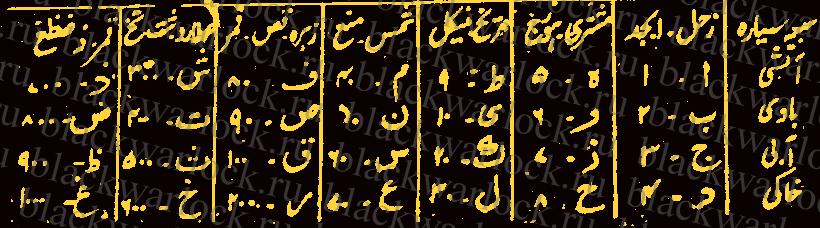 سیارہ زحل۔ ابجد مشتری ہوزح مریخ طیکل شمس زہرہ قمر
آتشی ا ۔ ۱ ہ ۔ ۵ ط ۔ ۹ م ۔ ۴۰ ف ۔ ۸۰ ش ۔ ۳۰۰ ذ ۔ ۷۰۰
بادی ب ۔ ۲ و ۔ ۶ ی ۔ ۱۰ ن ص ۔ ۹۰ ت ۔ ۴۰۰ ض ۔ ۸۰۰
آبی ج ۔ ۳ ز ۔ ۷ ک ۔ ۲۰ س ۔ ۶۰ ق ۔ ۱۰۰ ث ۔ ۵۰۰ ظ ۔ ۹۰۰
خاکی د ۔ ۴ ح ۔ ۸ ل ۔ ۳۰ ع ۔ ۷۰ ر ۔ ۲۰۰ خ ۔ ۶۰۰ غ ۔ ۱۰۰۰
blackwarlock.ru